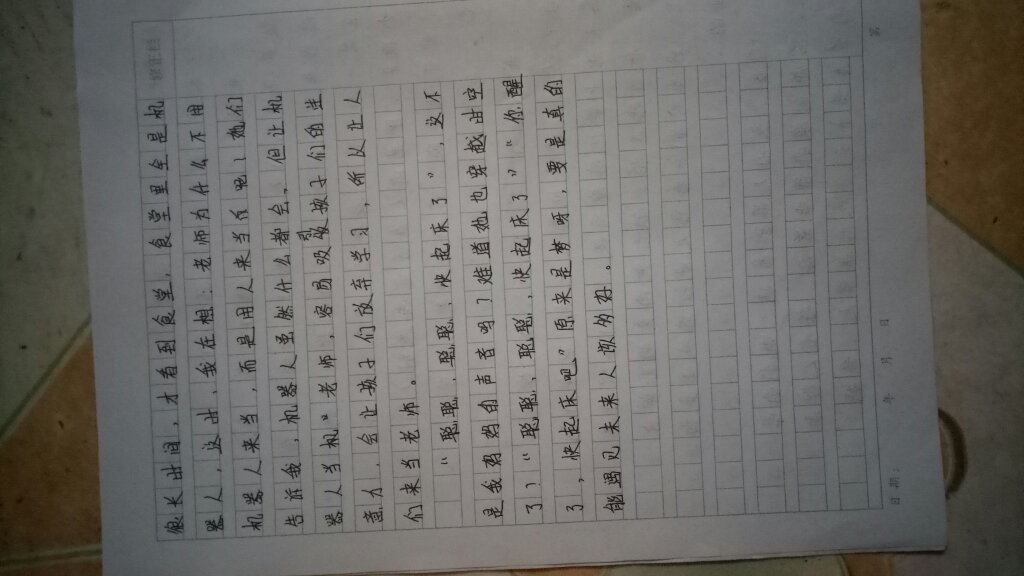 很长时间，才看到食堂，食堂里全是机
器人，这时，我在想：老师为什么不用
机器人来当，而是用人来当的呢？她们
告诉我，机器人虽然什么都会，但让机
器人当机“老师，容易吸引孩子们的注
意力，会让孩子们放弃学习，所以让人
们来当老师。
“聪聪，聪聪，快起床了”，这不
是我妈妈的声音吗？难道她也穿越时空
了？“聪聪，聪聪，快起床了”“你醒
了，快起床吧”原来是梦呀，要是真的
能遇见未来人该多好。
日期：
年 月 日
第